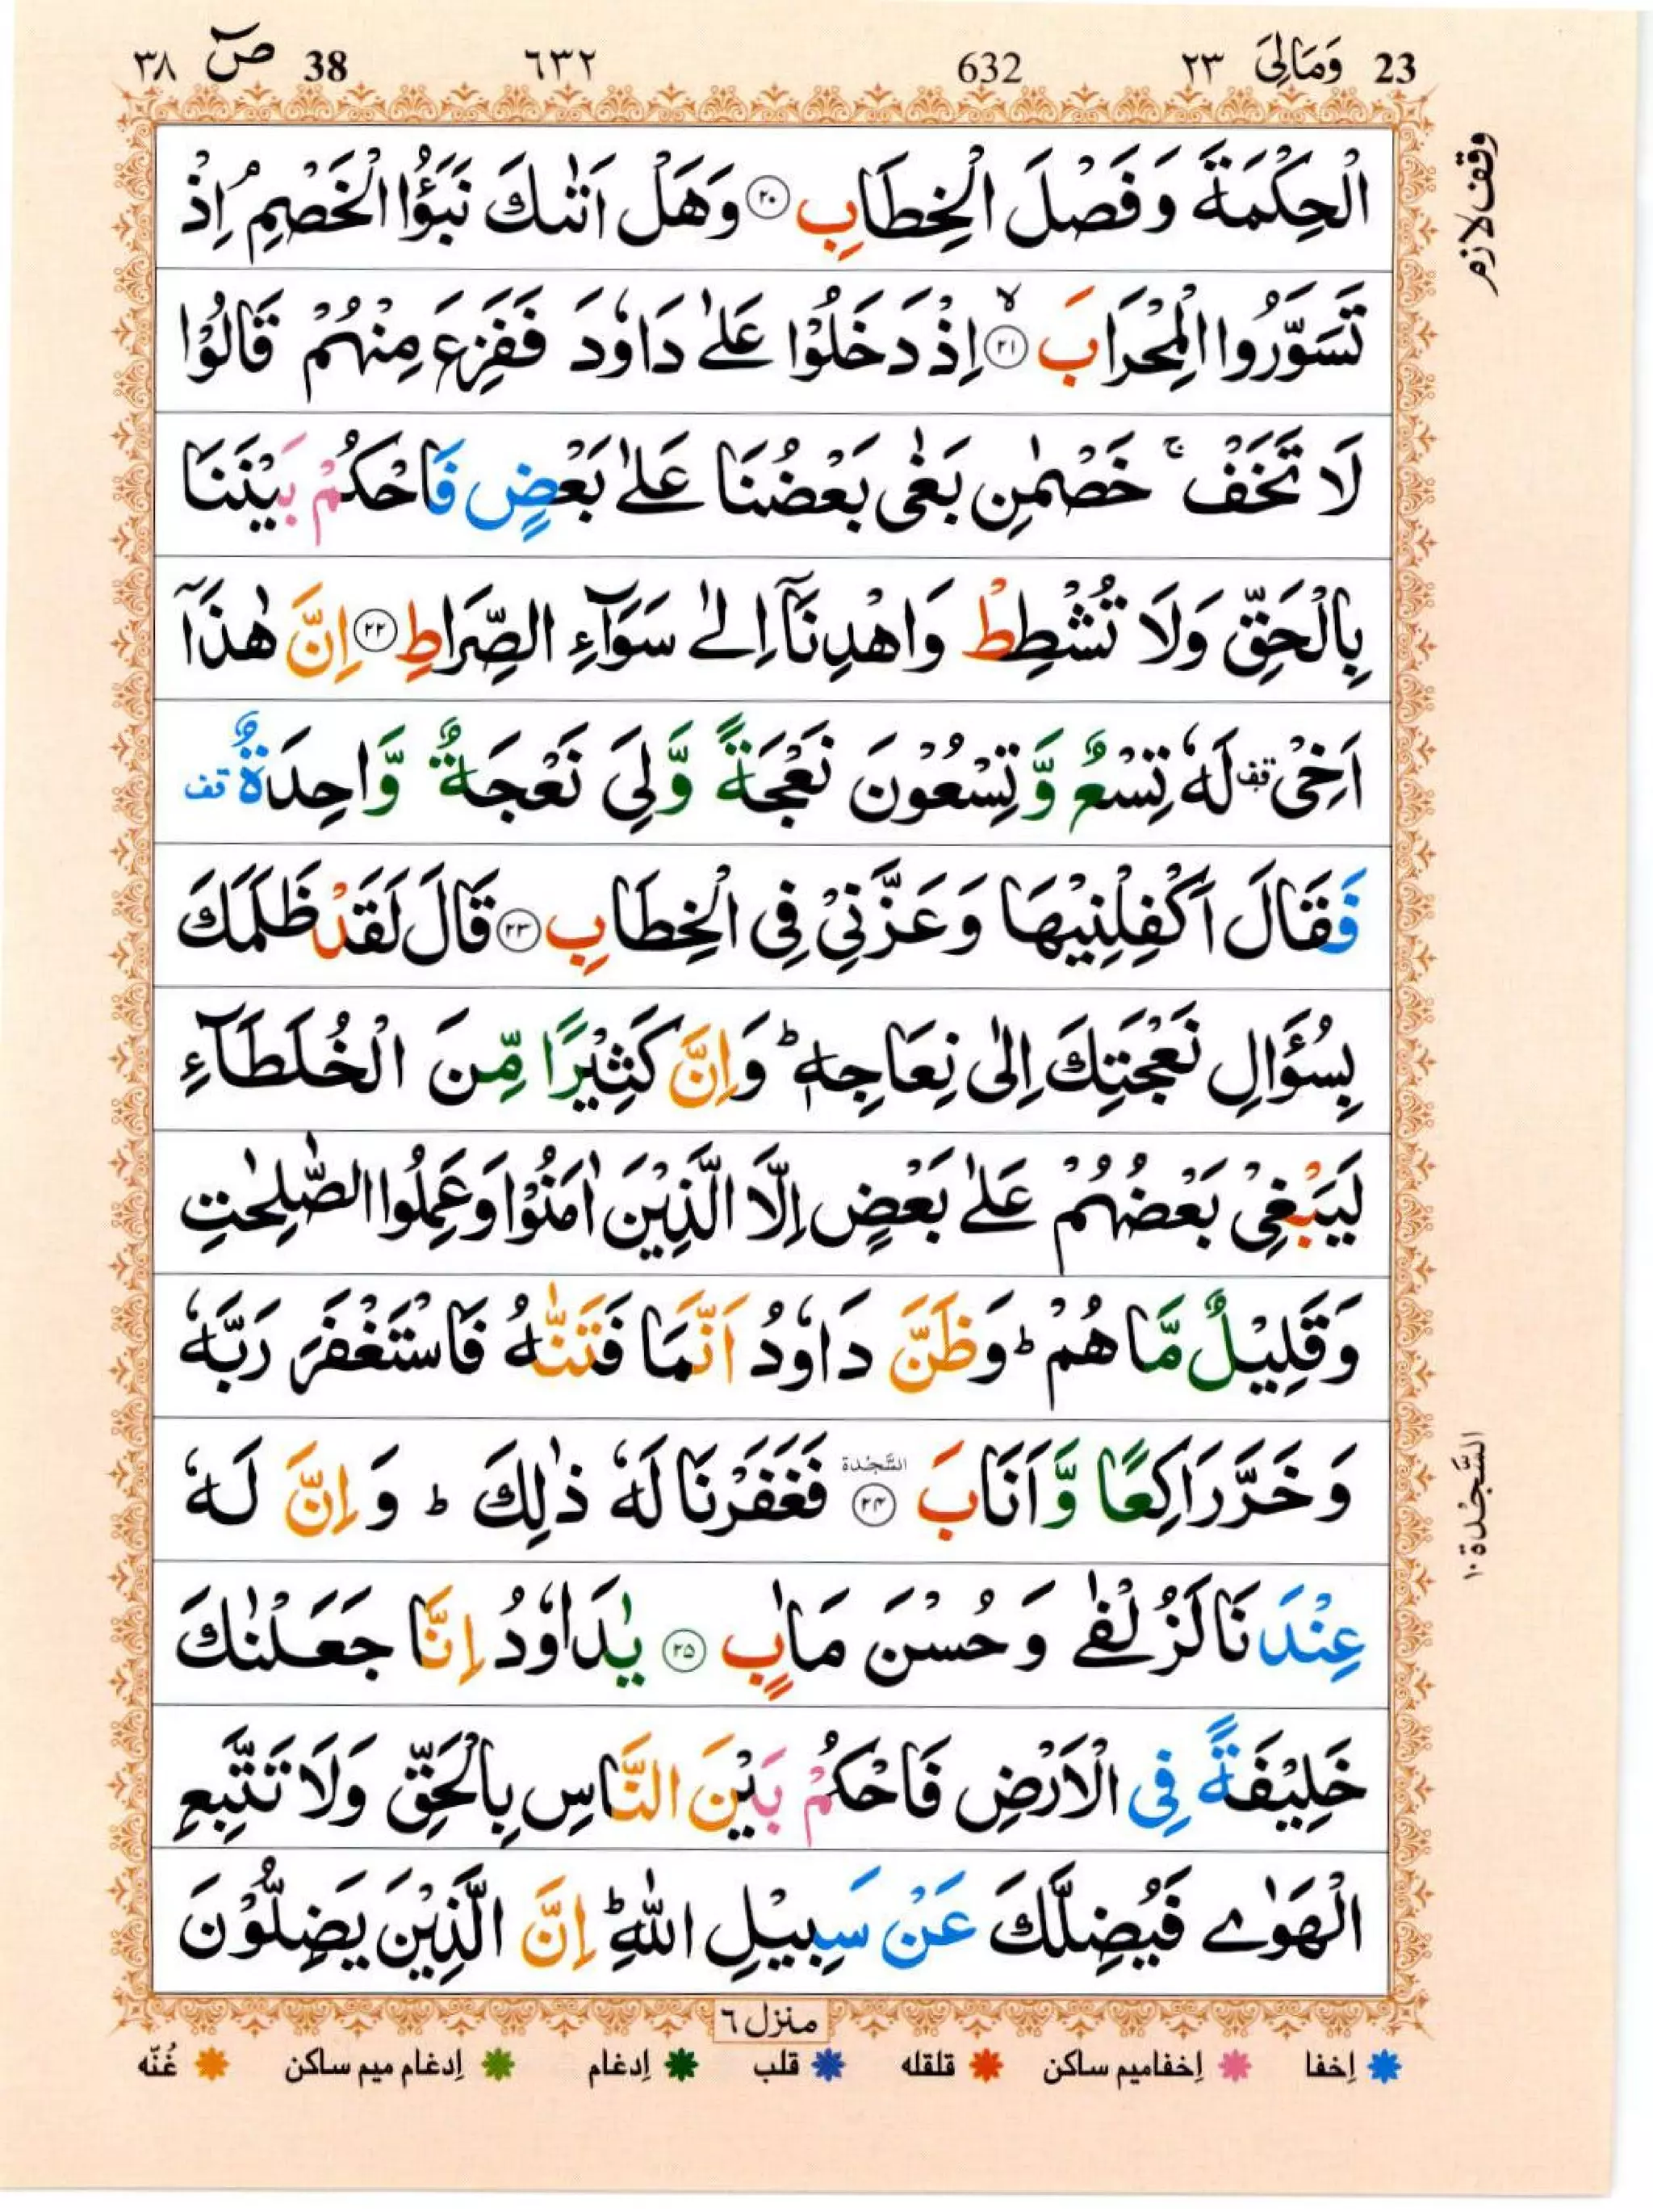 23 وَمَالِىَ ٢٣ 632 ٦٣٢ 38 صٓ ٣٨
وقف لازم
الْحِكْمَةَ وَفَصْلَ الْخِطَابِ ۝۲۰ وَهَلْ اَتٰىكَ نَبَؤُا الْخَصْمِ ۘ اِذْ
تَسَوَّرُوا الْمِحْرَابَ ۝۲۱ ۙ اِذْ دَخَلُوْا عَلٰى دَاوٗدَ فَفَزِعَ مِنْهُمْ قَالُوْا
لَا تَخَفْ ۚ خَصْمٰنِ بَغٰى بَعْضُنَا عَلٰى بَعْضٍ فَاحْكُمْ بَيْنَنَا
بِالْحَقِّ وَلَا تُشْطِطْ وَاهْدِنَاۤ اِلٰى سَوَآءِ الصِّرَاطِ ۝۲۲ اِنَّ هٰذَاۤ
اَخِيْ ۫ قف لَهٗ تِسْعٌ وَّ تِسْعُوْنَ نَعْجَةً وَّلِيَ نَعْجَةٌ وَّاحِدَةٌ قف
فَقَالَ اَكْفِلْنِيْهَا وَعَزَّنِيْ فِى الْخِطَابِ ۝۲۳ قَالَ لَقَدْ ظَلَمَكَ
بِسُؤَالِ نَعْجَتِكَ اِلٰى نِعَاجِهٖ ؕ وَاِنَّ كَثِيْرًا مِّنَ الْخُلَطَآءِ
لَيَبْغِيْ بَعْضُهُمْ عَلٰى بَعْضٍ اِلَّا الَّذِيْنَ اٰمَنُوْا وَعَمِلُوا الصّٰلِحٰتِ
وَقَلِيْلٌ مَّا هُمْ ؕ وَظَنَّ دَاوٗدُ اَنَّمَا فَتَنّٰهُ فَاسْتَغْفَرَ رَبَّهٗ
وَخَرَّ رَاكِعًا وَّاَنَابَ ۝۲۴ السَّجْدة فَغَفَرْنَا لَهٗ ذٰلِكَ ؕ وَاِنَّ لَهٗ
السَّجْدة ١٠
عِنْدَنَا لَزُلْفٰى وَحُسْنَ مَاٰبٍ ۝۲۵ يٰدَاوٗدُ اِنَّا جَعَلْنٰكَ
خَلِيْفَةً فِى الْاَرْضِ فَاحْكُمْ بَيْنَ النَّاسِ بِالْحَقِّ وَلَا تَتَّبِعِ
الْهَوٰى فَيُضِلَّكَ عَنْ سَبِيْلِ اللّٰهِ ؕ اِنَّ الَّذِيْنَ يَضِلُّوْنَ
منزل ٦
اِخفا اِخفامیم ساکن قلقله قلب اِدغام اِدغام میم ساکن غُنّه